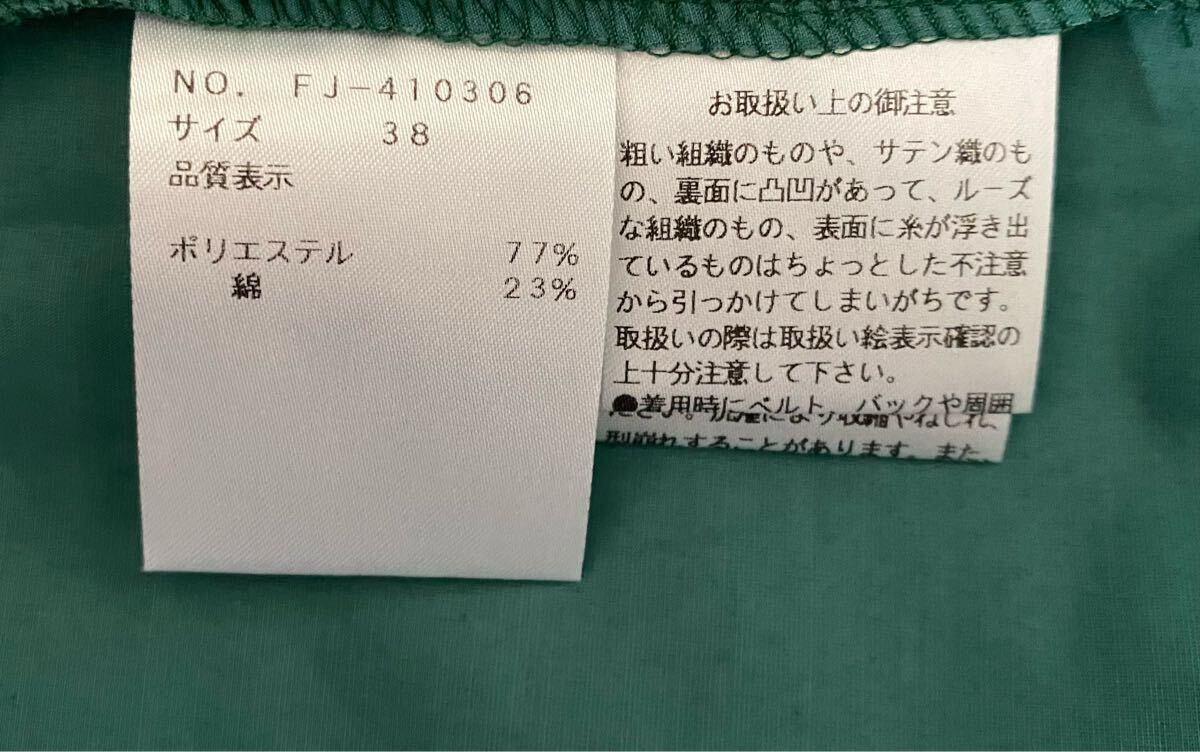 NO. FJ-410306
サイズ 38
品質表示
ポリエステル 77%
綿 23%
お取扱い上の御注意
粗い組織のものや、サテン織のも
の、裏面に凸凹があって、ルーズ
な組織のもの、表面に糸が浮き出
ているものはちょっとした不注意
から引っかけてしまいがちです。
取扱いの際は取扱い絵表示確認の
上十分注意して下さい。
●着用時にベルト、バックや周囲
型崩れすることがあります。また、